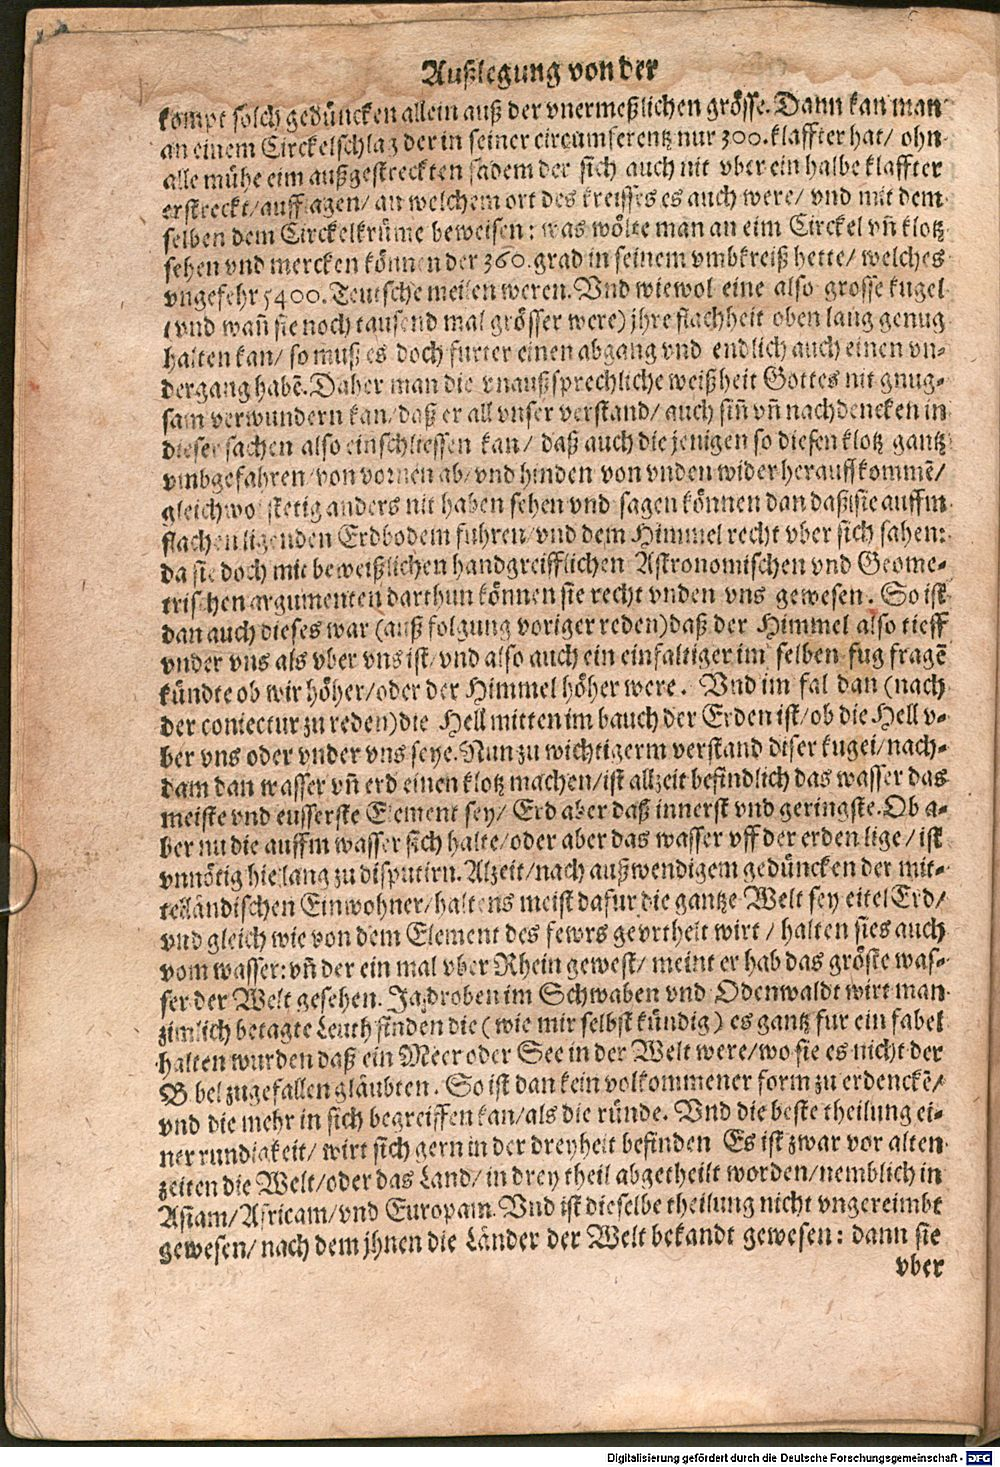 Außlegung von der
kompt solch gedüncken allein auß der vnermeßlichen grösse. Dann kan man
an einem Circkelschlag der in seiner circumferentz nur 300. klaffter hat/ ohn
alle mühe eim außgestreckten fadem der sich auch nit vber ein halbe klaffter
erstreckt/ aufflagen/ an welchem ort des kreisses es auch were/ vnd mit dem
selben dem Circkelkrüme beweisen: was wölte man an eim Circkel vñ klotz
sehen vnd mercken können der 360. grad in seinem vmbkreiß hette/ welches
vngefehr 5400. Teutsche meilen weren. Vnd wiewol eine also grosse kugel
(vnd wañ sie noch tausend mal grösser were) jhre flachheit oben lang genug
halten kan/ so muß es doch furter einen abgang vnd endlich auch einen vn-
dergang habē. Daher man die vnaußsprechliche weißheit Gottes nit gnug-
sam verwundern kan/ daß er all vnser verstand/ auch siñ vñ nachdencken in
dieser sachen also einschliessen kan/ daß auch die jenigen so diesen klotz gantz
vmbgefahren/ von vornen ab/ vnd hinden von vnden wider herauff kommē/
gleichwol stetig anders nit haben sehen vnd sagen können dan daß sie auffm
flachen ligenden Erdbodem fuhren/ vnd dem Himmel recht vber sich sahen:
da sie doch mit beweißlichen handgreifflichen Astronomischen vnd Geome-
trischen argumenten darthun können sie recht vnden vns gewesen. So ist
dan auch dieses war (auß folgung voriger reden) daß der Himmel also tieff
vnder vns als vber vns ist/ vnd also auch ein einfaltiger im selben fug fragē
kündte ob wir höher/ oder der Himmel höher were. Vnd im fal dan (nach
der coniectur zu reden) die Hell mitten im bauch der Erden ist/ ob die Hell v-
ber vns oder vnder vns seye. Nun zu wichtigerm verstand diser kugel/ nach-
dam dan wasser vñ erd einen klotz machen/ ist allzeit befindlich das wasser das
meiste vnd eusserste Element sey/ Erd aber daß innerst vnd geringste. Ob a-
ber nu die auffm wasser sich halte/ oder aber das wasser vff der erden lige/ ist
vnnötig hie lang zu disputirn. Alzeit/ nach außwendigem gedüncken der mit-
telländischen Einwohner/ haltens meist dafur die gantze Welt sey eitel Erd/
vnd gleich wie von dem Element des fewrs gevrtheilt wirt/ halten sies auch
vom wasser: vñ der ein mal vber Rhein gewest/ meint er hab das gröste was-
ser der Welt gesehen. Ja droben im Schwaben vnd Odenwaldt wirt man
zimlich betagte Leuth finden die (wie mir selbst kündig) es gantz fur ein fabel
halten wurden daß ein Meer oder See in der Welt were/ wo sie es nicht der
Bibel zugefallen gläubten. So ist dan kein volkommener form zu erdenckē/
vnd die mehr in sich begreiffen kan/ als die ründe. Vnd die beste theilung ei-
ner rundigkeit/ wirt sich gern in der dreyheit befinden Es ist zwar vor alten
zeiten die Welt/ oder das Land/ in drey theil abgetheilt worden/ nemblich in
Asiam/ Africam/ vnd Europam. Vnd ist dieselbe theilung nicht vngereimbt
gewesen/ nach dem jhnen die Länder der Welt bekandt gewesen: dann sie
vber
Digitalisierung gefördert durch die Deutsche Forschungsgemeinschaft - DFG